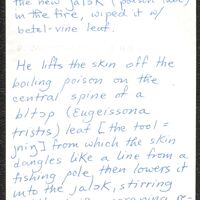 the new jalɔk (poison
in the fire, wiped it w/
betel-vine leaf.
He lifts the skin off the
boiling poison on the
central spine of a
bltɔp (Eugeissona
tristis) leaf [the tool =
jnin] from which the skin
dangles like a line from a
fishing pole, then lowers it
into the jalɔk, stirring